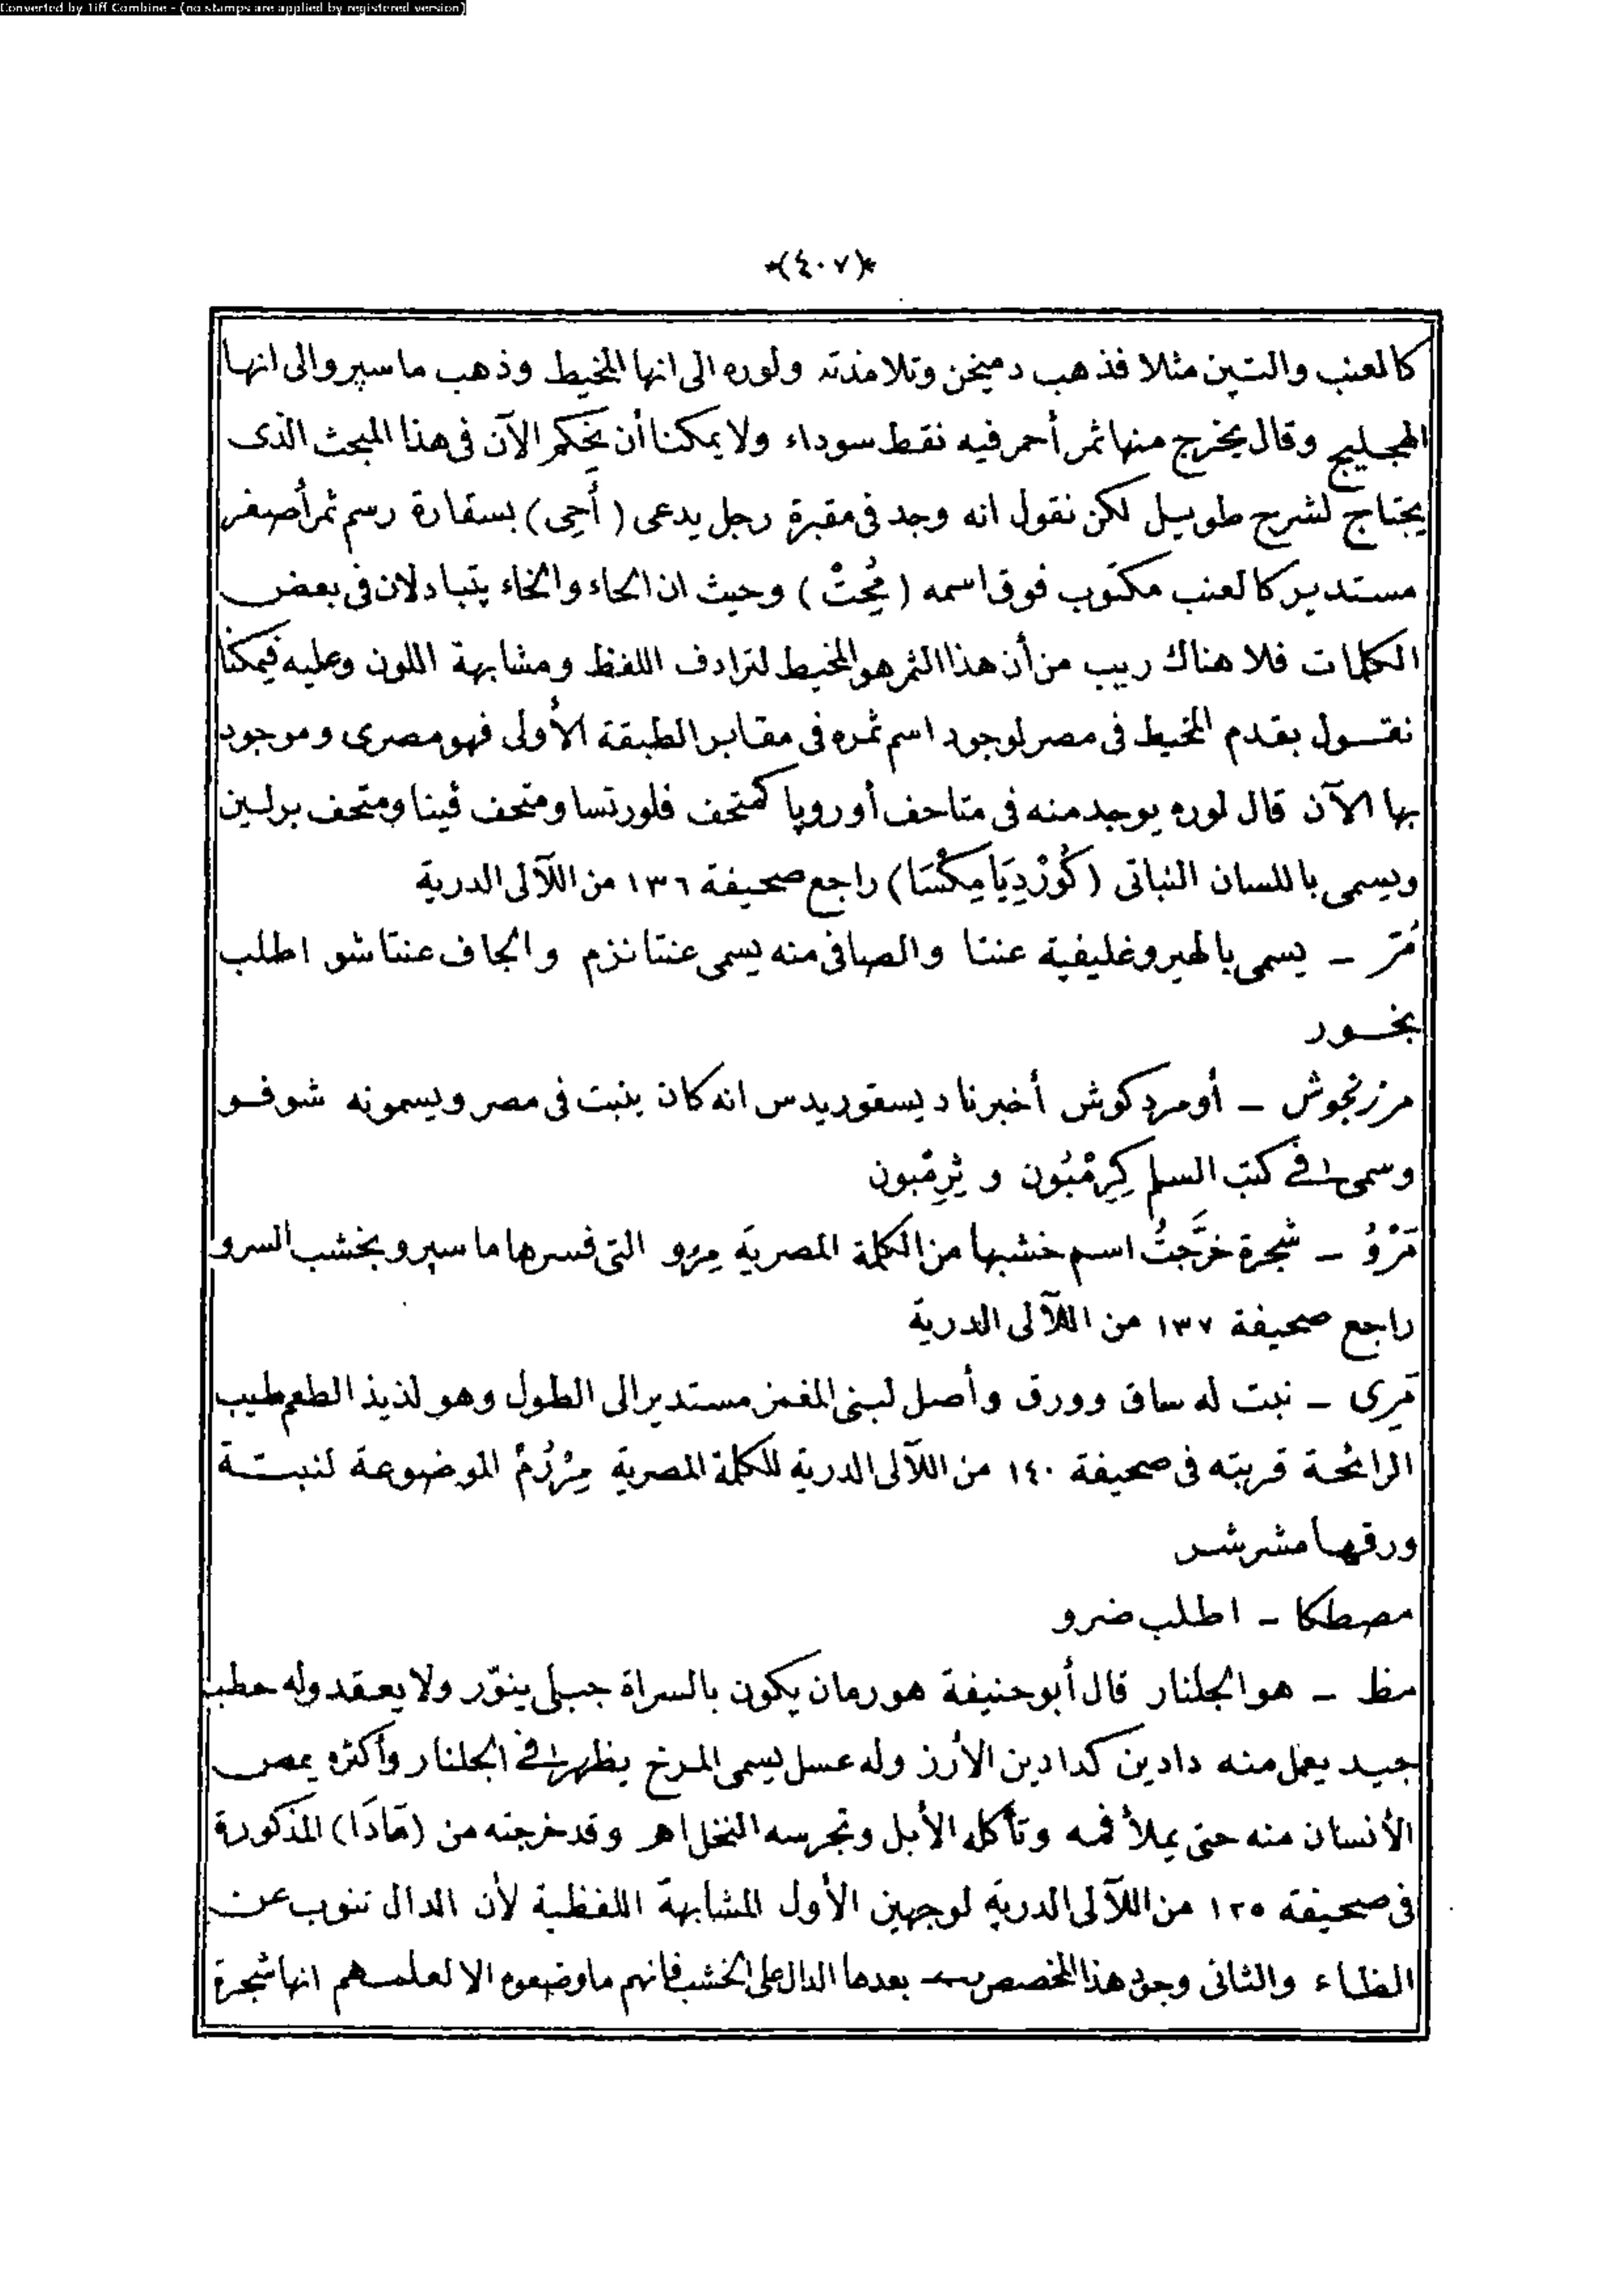 Converted by Tiff Combine - (no stamps are applied by registered version)
*(٤٠٧)*
كالعنب والتين مثلا فذهب دميخن وتلامذته ولوره الى انها المخيط وذهب ماسپرو الى انها
الهجليج وقال يخرج منها ثمر أحمر فيه نقط سوداء ولا يمكننا أن نحكم الآن فى هذا المبحث الذى
يحتاج لشرح طويل لكن نقول انه وجد فى مقبرة رجل يدعى (أَحِى) بسقارة رسم ثمر أصفر
مستدير كالعنب مكتوب فوق اسمه (مُحِتْ) وحيث ان الحاء والخاء يتبادلان فى بعض
الكلمات فلا هناك ريب من أن هذا الثمر هو المخيط لترادف اللفظ ومشابهة اللون وعليه فيمكنا
نقول بقدم المخيط فى مصر لوجود اسم ثمره فى مقابر الطبقة الأولى فهو مصرى وموجود
بها الآن قال لوره يوجد منه فى متاحف أوروپا كمتحف فلورتسا ومتحف ڤينا ومتحف برلين
ويسمى باللسان النباتى (كُورْدِيَا مِكْسَا) راجع صحيفة ١٣٦ من اللآلى الدرية
مُرّ - يسمى بالهيروغليفية عنتا والصافى منه يسمى عنتا نزم والجاف عنتاشو اطلب
بخور
مرزنجوش - أو مردكوش أخبرنا ديسقوريدس انه كان ينبت فى مصر ويسمونه شوفو
وسمى فى كتب السلم كِرِمْبُون و ثِرِمْبون
مَرْوُ - شجرة خرَّجتُ اسم خشبها من الكلمة المصرية مِرو التى فسرها ماسپرو بخشب السرو
راجع صحيفة ١٣٧ من اللآلى الدرية
مَرِى - نبت له ساق وورق وأصل لبنى المغمز مستدير الى الطول وهو لذيذ الطعم طيب
الرائحة قربته فى صحيفة ١٤٠ من اللآلى الدرية للكلمة المصرية مِرْزُمْ الموضوعة لنبتة
ورقها مشرشر
مصطكا - اطلب ضرو
مظ - هو الجلنار قال أبو حنيفة هو رمان يكون بالسراة جبلى ينوّر ولا يعقد وله حطب
جيد يعمل منه دادين كدادين الأرز وله عسل يسمى المرخ يظهر فى الجلنار وأكثره يمص
الأنسان منه حتى يملأ فمه وتأكله الأبل وتجرسه النحل اهر وقد خرجته من (مَادَا) المذكورة
فى صحيفة ١٢٥ من اللآلى الدرية لوجهين الأول المشابهة اللفظية لأن الدال تنوب عن
الظاء والثانى وجود هذا المخصص بعدها الدال على الخشب فانهم ما وضعوه الا لعلمهم انها شجرة